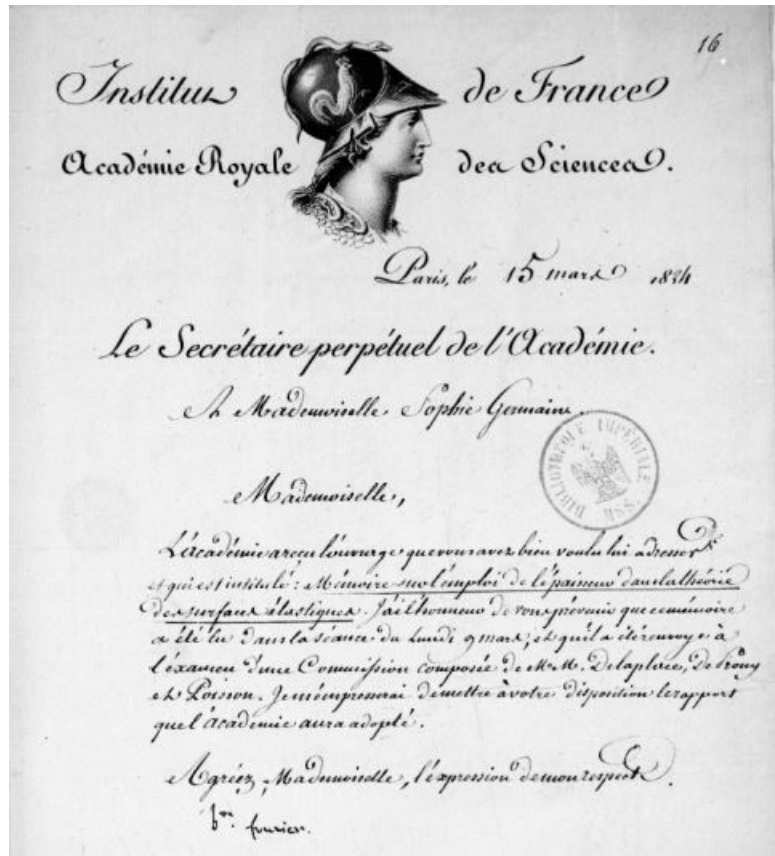 16
Institut de France
Académie Royale des Sciences.
Paris, le 15 mars 1824
Le Secrétaire perpétuel de l'Académie.
A Mademoiselle Sophie Germain.
BIBLIOTHEQUE IMPERIALE MSS
Mademoiselle,
L'académie a reçu l'ouvrage que vous avez bien voulu lui adresser
et qui est intitulé : Mémoire sur l'emploi de l'épaisseur dans la théorie
des surfaces élastiques. J'ai l'honneur de vous prévenir que ce mémoire
a été lu dans la séance du Lundi 9 mars, et qu'il a été renvoyé à
l'éxamen d'une Commission composée de M.M. Delaplace, De Prony
et Poisson. Je m'empresserai de mettre à votre disposition le rapport
que l'académie aura adopté.
Agréez, Mademoiselle, l'expression de mon respect.
bon fourier.